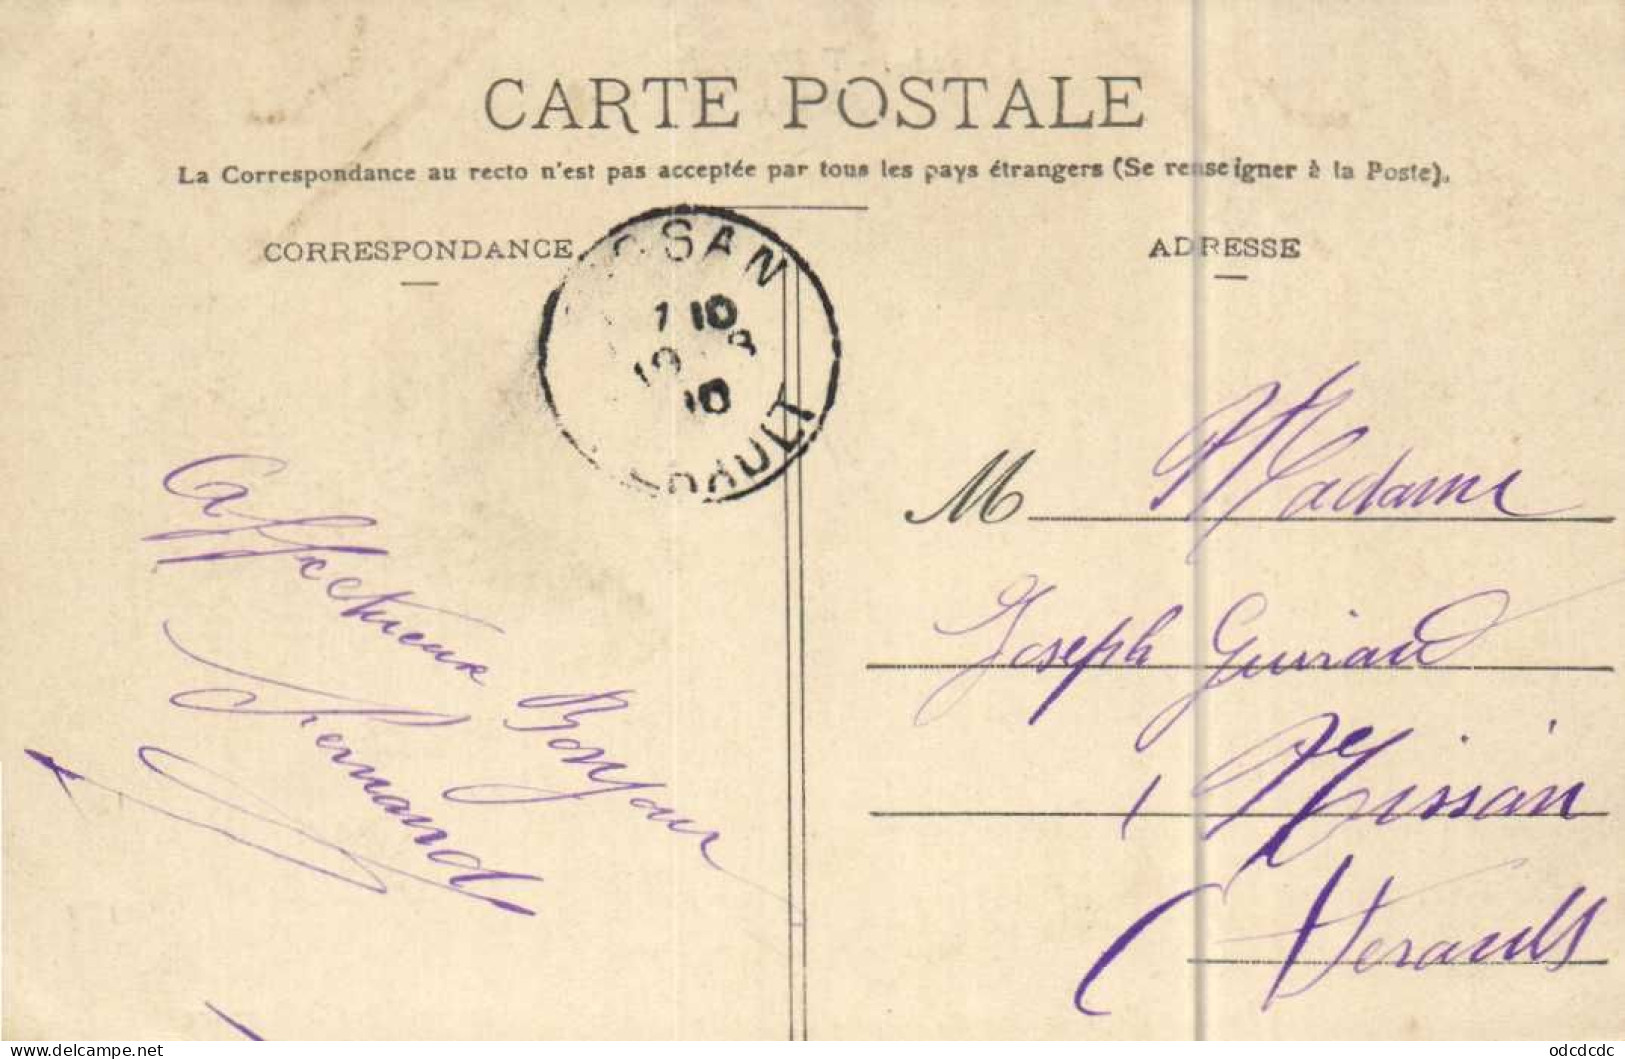 CARTE POSTALE
La Correspondance au recto n'est pas acceptée par tous les pays étrangers (Se renseigner à la Poste).
CORRESPONDANCE
ADRESSE
SSAN
1 10
10
HÉRAULT
Affectueux Bonjour
Fernand
M Madame
Joseph Guiraud
Nissan
(Herault
odcdcdc